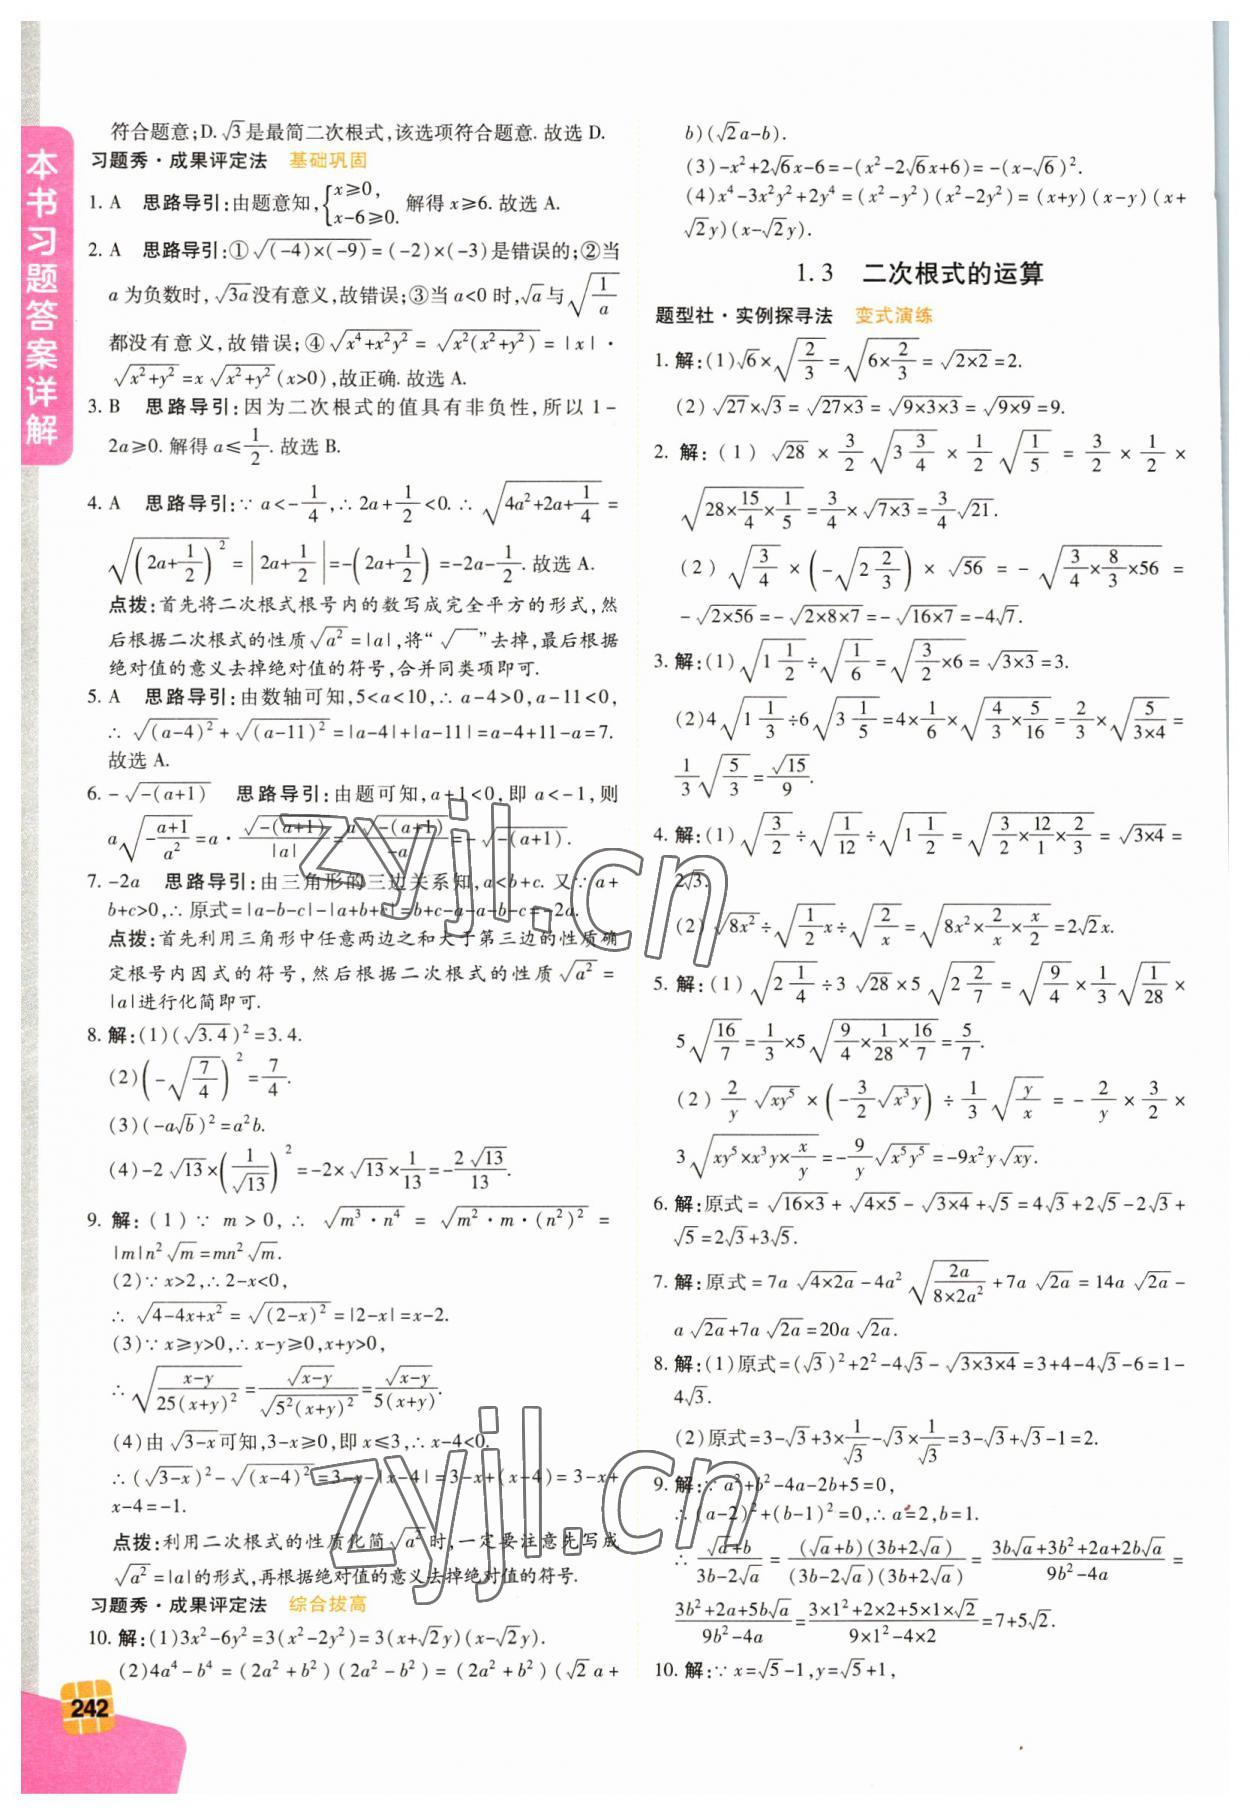 本书习题答案详解
符合题意;D.√3是最简二次根式,该选项符合题意.故选D.
习题秀·成果评定法 基础巩固
1. A 思路导引:由题意知,{x≥0, x-6≥0. 解得 x≥6. 故选 A.
2. A 思路导引:①√((-4)×(-9))=(-2)×(-3)是错误的;②当
a为负数时,√(3a)没有意义,故错误;③当a<0时,√a与√(1/a)
都没有意义,故错误;④√(x⁴+x²y²)=√(x²(x²+y²))=|x|·
√(x²+y²)=x√(x²+y²)(x>0),故正确.故选A.
3. B 思路导引:因为二次根式的值具有非负性,所以1-
2a≥0.解得a≤1/2.故选B.
4. A 思路导引:∵a<-1/4,∴2a+1/2<0.∴√(4a²+2a+1/4)=
√((2a+1/2)²)=|2a+1/2|=-(2a+1/2)=-2a-1/2.故选A.
点拨:首先将二次根式根号内的数写成完全平方的形式,然
后根据二次根式的性质√(a²)=|a|,将“√ ”去掉,最后根据
绝对值的意义去掉绝对值的符号,合并同类项即可.
5. A 思路导引:由数轴可知,5<a<10,∴a-4>0,a-11<0,
∴√((a-4)²)+√((a-11)²)=|a-4|+|a-11|=a-4+11-a=7.
故选A.
6. -√(-(a+1)) 思路导引:由题可知,a+1<0,即a<-1,则
a√(-(a+1)/a²)=a·√(-(a+1))/|a|=a√(-(a+1))/-a=-√(-(a+1)).
7. -2a 思路导引:由三角形的三边关系知,a<b+c.又∵a+
b+c>0,∴原式=|a-b-c|-|a+b+c|=b+c-a-a-b-c=-2a.
点拨:首先利用三角形中任意两边之和大于第三边的性质确
定根号内因式的符号,然后根据二次根式的性质√(a²)=
|a|进行化简即可.
8. 解:(1)(√3.4)²=3.4.
(2)(-√(7/4))²=7/4.
(3)(-a√b)²=a²b.
(4)-2√13×(1/√13)²=-2×√13×1/13=-2√13/13.
9. 解:(1)∵m>0,∴√(m³·n⁴)=√(m²·m·(n²)²)=
|m|n²√m=mn²√m.
(2)∵x>2,∴2-x<0,
∴√(4-4x+x²)=√((2-x)²)=|2-x|=x-2.
(3)∵x≥y>0,∴x-y≥0,x+y>0,
∴√((x-y)/25(x+y)²)=√(x-y)/√(5²(x+y)²)=√(x-y)/5(x+y).
(4)由√(3-x)可知,3-x≥0,即x≤3,∴x-4<0.
∴(√(3-x))²-√((x-4)²)=3-x-|x-4|=3-x+(x-4)=3-x+
x-4=-1.
点拨:利用二次根式的性质化简√(a²)时,一定要注意先写成
√(a²)=|a|的形式,再根据绝对值的意义去掉绝对值的符号.
习题秀·成果评定法 综合拔高
10. 解:(1)3x²-6y²=3(x²-2y²)=3(x+√2y)(x-√2y).
(2)4a⁴-b⁴=(2a²+b²)(2a²-b²)=(2a²+b²)(√2a+
242
b)(√2a-b).
(3)-x²+2√6x-6=-(x²-2√6x+6)=-(x-√6)².
(4)x⁴-3x²y²+2y⁴=(x²-y²)(x²-2y²)=(x+y)(x-y)(x+
√2y)(x-√2y).
1.3 二次根式的运算
题型社·实例探寻法 变式演练
1. 解:(1)√6×√(2/3)=√(6×2/3)=√(2×2)=2.
(2)√27×√3=√(27×3)=√(9×3×3)=√(9×9)=9.
2. 解:(1)√28×3/2√(3 3/4)×1/2√(1/5)=3/2×1/2×
√(28×15/4×1/5)=3/4×√(7×3)=3/4√21.
(2)√(3/4)×(-√(2 2/3))×√56=-√(3/4×8/3×56)=
-√(2×56)=-√(2×8×7)=-√(16×7)=-4√7.
3. 解:(1)√(1 1/2)÷√(1/6)=√(3/2×6)=√(3×3)=3.
(2)4√(1 1/3)÷6√(3 1/5)=4×1/6×√(4/3×5/16)=2/3×√(5/3×4)=
1/3√(5/3)=√15/9.
4. 解:(1)√(3/2)÷√(1/12)÷√(1 1/2)=√(3/2×12/1×2/3)=√(3×4)=
2√3.
(2)√(8x²)÷√(1/2x)÷√(2/x)=√(8x²×2/x×x/2)=2√2x.
5. 解:(1)√(2 1/4)÷3√28×5√(2 2/7)=√(9/4)×1/3√(1/28)×
5√(16/7)=1/3×5√(9/4×1/28×16/7)=5/7.
(2)2/y√(xy⁵)×(-3/2√(x³y))÷1/3√(y/x)=-2/y×3/2×
3√(xy⁵×x³y×x/y)=-9/y√(x⁵y⁵)=-9x²y√(xy).
6. 解:原式=√(16×3)+√(4×5)-√(3×4)+√5=4√3+2√5-2√3+
√5=2√3+3√5.
7. 解:原式=7a√(4×2a)-4a²√(2a/8×2a²)+7a√(2a)=14a√(2a)-
a√(2a)+7a√(2a)=20a√(2a).
8. 解:(1)原式=(√3)²+2²-4√3-√(3×3×4)=3+4-4√3-6=1-
4√3.
(2)原式=3-√3+3×1/√3-√3×1/√3=3-√3+√3-1=2.
9. 解:∵a²+b²-4a-2b+5=0,
∴(a-2)²+(b-1)²=0,∴a=2,b=1.
∴(√a+b)/(3b-2√a)=(√a+b)(3b+2√a)/(3b-2√a)(3b+2√a)=(3b√a+3b²+2a+2b√a)/(9b²-4a)=
(3b²+2a+5b√a)/(9b²-4a)=(3×1²+2×2+5×1×√2)/(9×1²-4×2)=7+5√2.
10. 解:∵x=√5-1,y=√5+1,
zyjl.cn
zyjl.cn